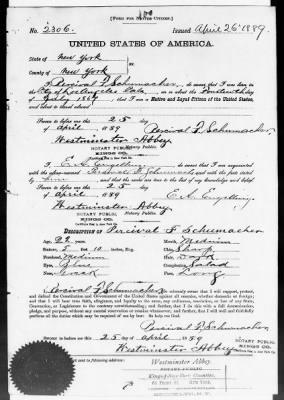 [FORM FOR NATIVE CITIZEN.]
No. 2306. Issued April 26" 1889
UNITED STATES OF AMERICA.
State of New York
County of New York
I Percival F. Schumacher, do swear that I was born in
Los Angeles Cala, on or about the Fourteenth day of
July 1866, that I am a Native and Loyal Citizen of the United States,
Sworn to before me this 25 day
of April 1889 Percival F. Schumacher
Westminster Abbey
NOTARY PUBLIC,
KINGS CO.
Notary Public.
I, do swear that I am acquainted
with the above-named Percival F. Schumacher and with the facts stated
and that the same are true to the best of my knowledge and belief
Sworn to before me this 25 day
of April 1889
Westminster Abbey
NOTARY PUBLIC,
KINGS CO.
Notary Public.
DESCRIPTION OF Percival F Schumacher
Age, 22 years. Mouth, Medium
Stature, 5 feet 10 inches, Eng. Chin, Sharp
Forehead, Medium Hair, Dark
Eyes, Blue Complexion,
Nose, Face, Long
I, Percival F. Schumacher do solemnly swear that I will support, protect,
and defend the Constitution and Government of the United States against all enemies, whether domestic or foreign;
and that I will bear true faith, allegiance, and loyalty to the same, any ordinance, resolution, or law of any State
Convention, or Legislature to the contrary notwithstanding; and further, that I do this with a full determination,
pledge, and purpose, without any mental reservation or evasion whatsoever; and further, that I will well and faithfully
perform all the duties which may be required of me by law: So help me God.
Percival F. Schumacher
Sworn to before me this 25 day of April 1889
Westminster Abbey
NOTARY PUBLIC
KINGS CO.
Westminster Abbey
NOTARY PUBLIC
Kings & New York Counties,
NEW YORK.